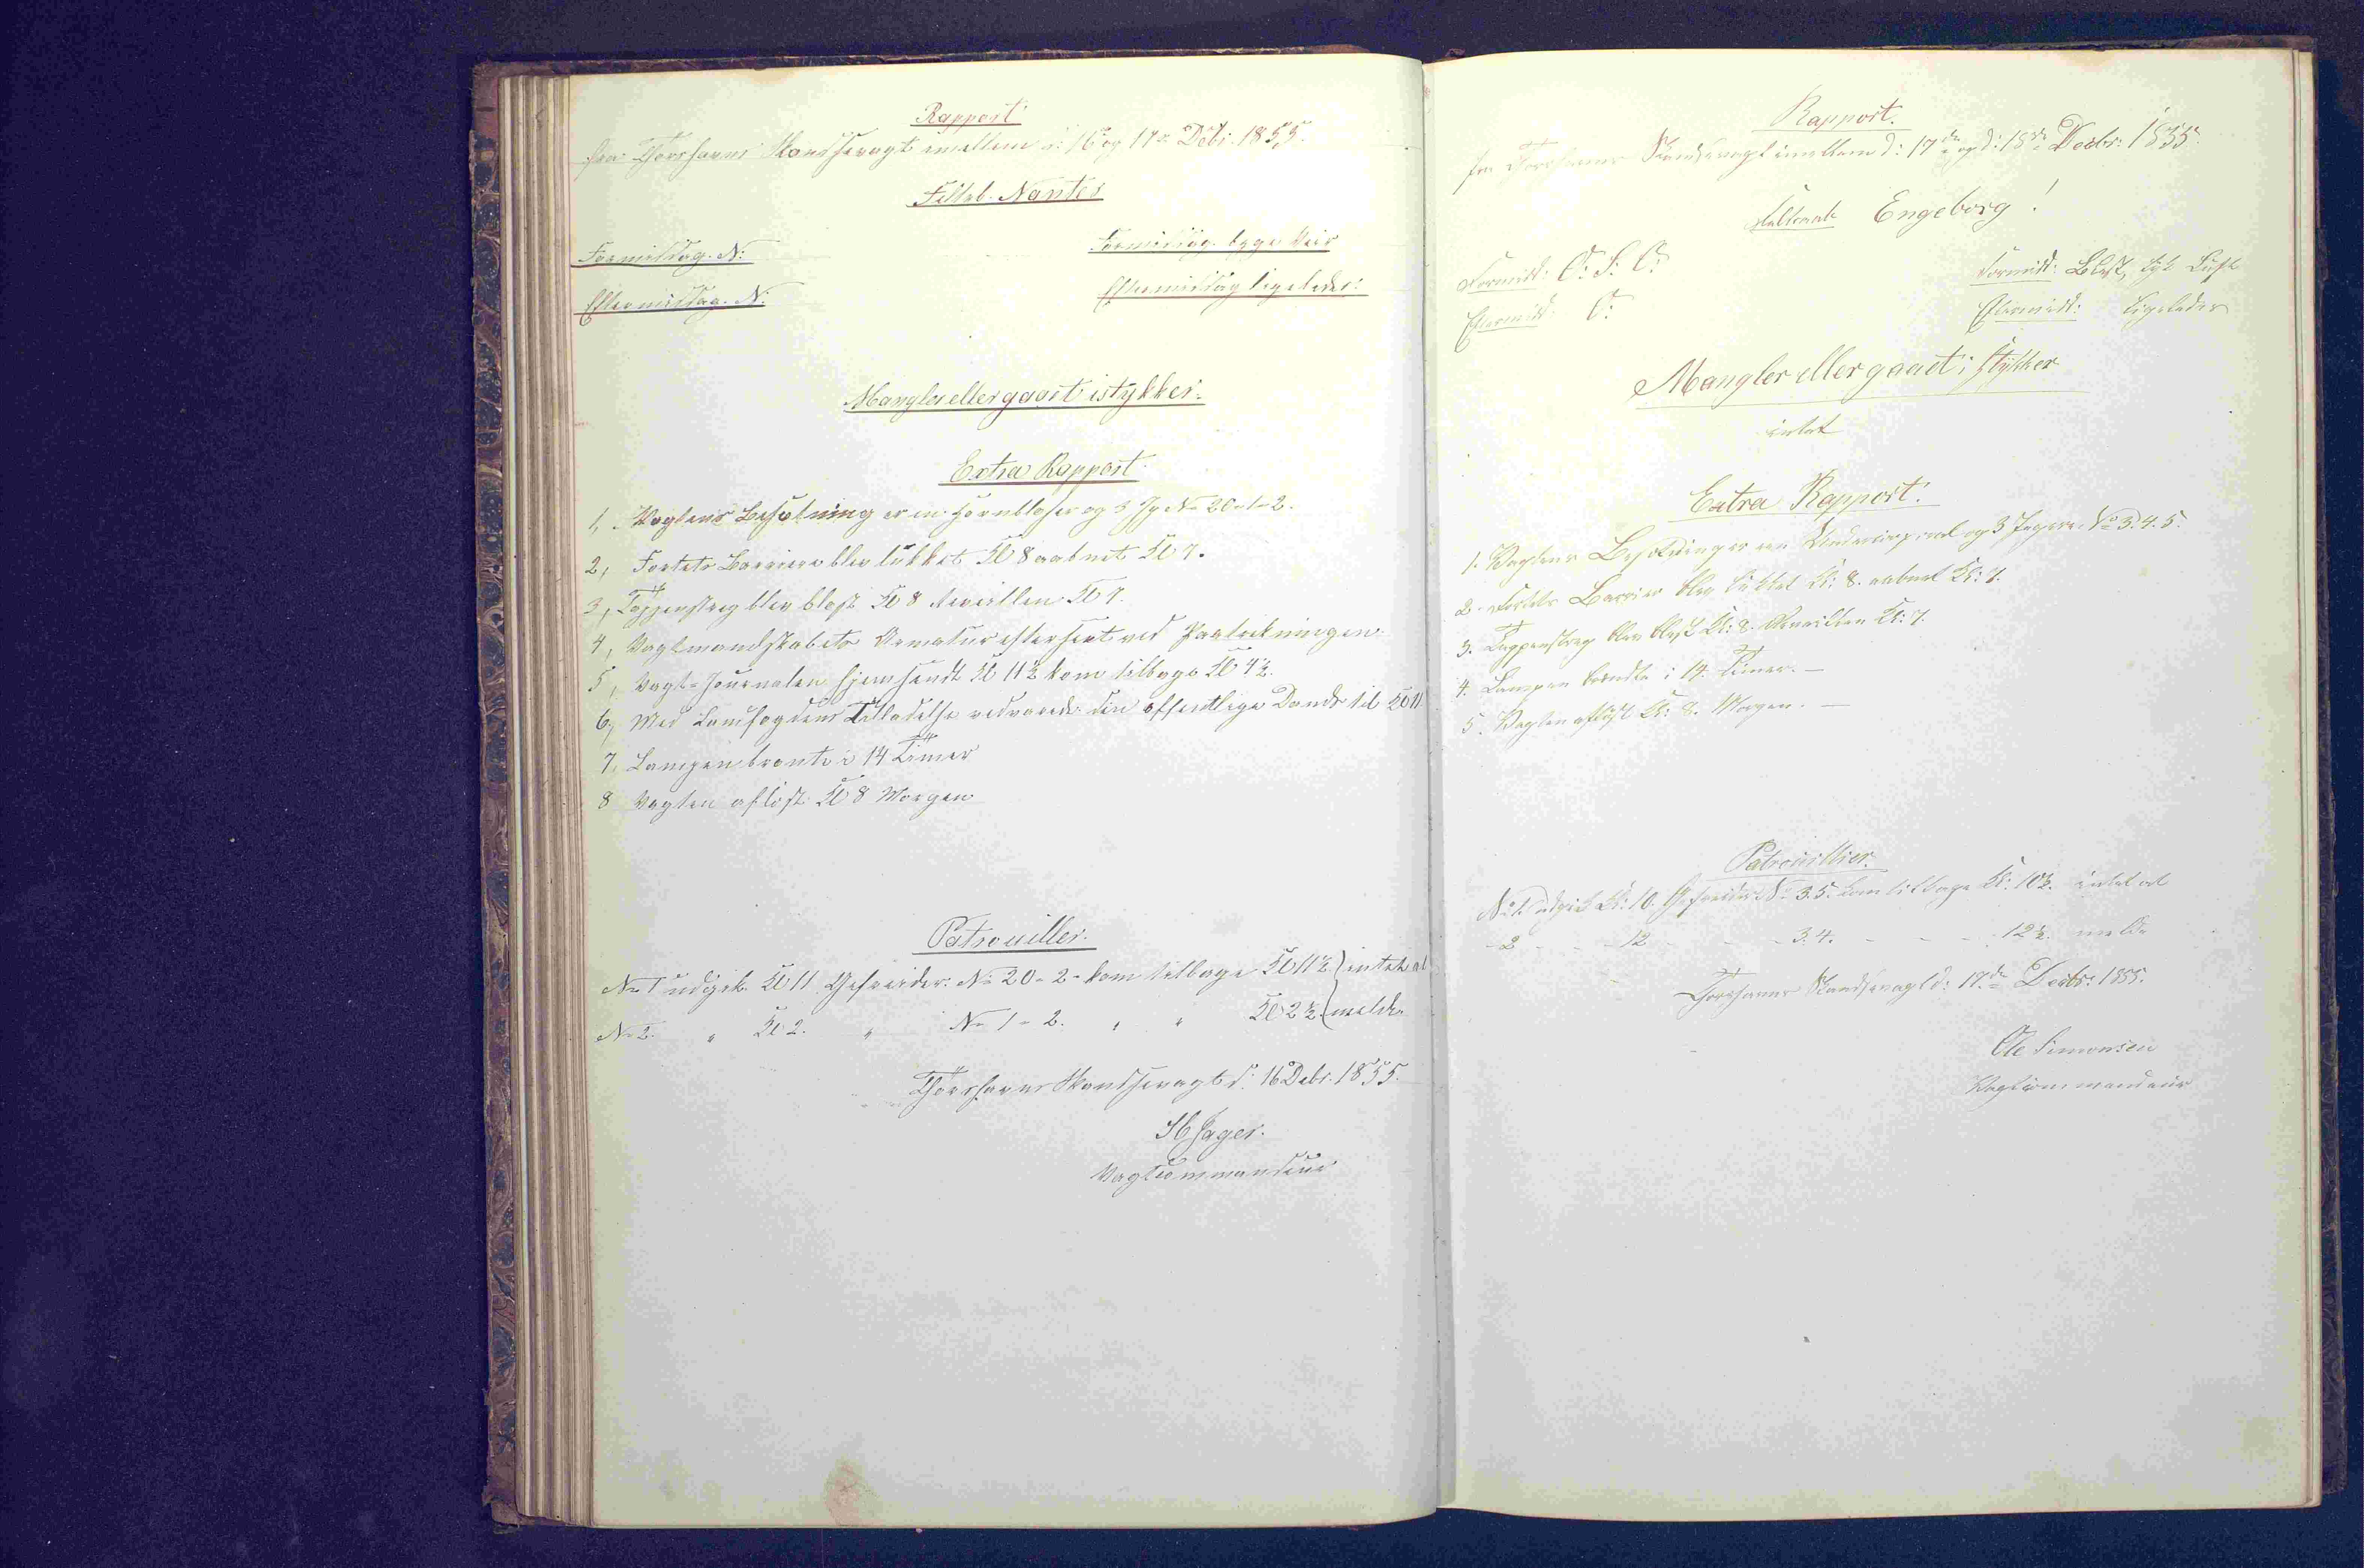 Rapport
fra Thorshavns Skandsevagt imellem d: 16 og 17de Debr. 1855.
Feltrb. Nantes
Formiddag. N:
Formiddag. bygeveir
Eftermiddag. N:
Eftermiddag ligeledes:
Mangler eller gaaet istykker.
Extra Rapport
1, Vagtens Besætning er en Hornblæser og 3 Jg No 20-1-2.
2, Fortets Barriere blev lukket Kl 8 aabnet Kl 7.
3, Tappenstreg blev blæst Kl 8 Reveillen Kl 7.
4, Vagtmandskabets Armatur efterseet ved Paatrækningen
5, Vagt-Journalen hjemsendt Kl 11½ kom tilbage Kl 4½.
6, Med Landfogdens Tilladelse vedvarede den offentlige Dands til Kl 11
7, Lampen brænte i 14 Timer
8 Vagten afløst Kl 8 Morgen
Patrouiller.
No 1 udgik Kl 11 Gefreider: No 20-2- kom tilbage Kl 11½ intet at
No 2. " Kl 2. " No 1-2. " " Kl 2½ melde
Thorshavns Skandsevagt d: 16 Debr. 1855.
Jager.
Vagtcommandeur
Rapport.
fra Thorshavns Skandsevagt imellem d: 17de og d: 18de Decbr: 1855.
Feltraab Engeborg!
Formidd: O: S: O:
Formidd: Blæst, tyk Luft
Eftermidd: O:
Eftermidd: ligeledes
Mangler eller gaaet i stykker
intet
Extra Rapport.
1. Vagtens Besætning er en Undercorporal og 3 Jægere No 3. 4. 5.
2. Fortets Barrier blev lukket Kl: 8. aabnet Kl: 7.
3. Tappenstreg blev blæst Kl: 8. Reveillen Kl: 7.
4. Lampen brændte i 14. Timer. —
5. Vagten afløst Kl: 8. Morgen. —
Patrouillier.
No 1. udgik Kl: 10. Gefreider No 3. 5. kom tilbage Kl: 10½. intet at
- 2 - - - 12 - - - 3. 4. - - - - 12½. melde
Thorshavns Skandsevagt d: 17de Decbr: 1855.
Ole Simonsen
Vagtcommandeur